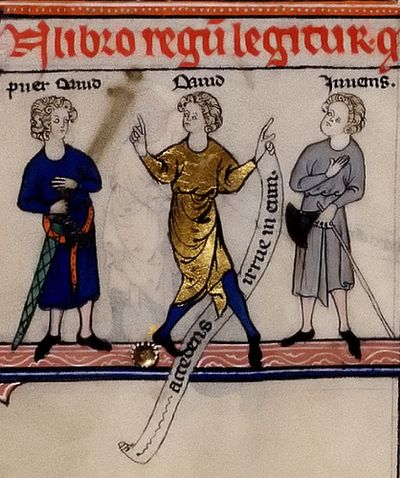 A libro regū legitur. q
puer dauid
Dauid
Juuens.
accedens irrue in eum.